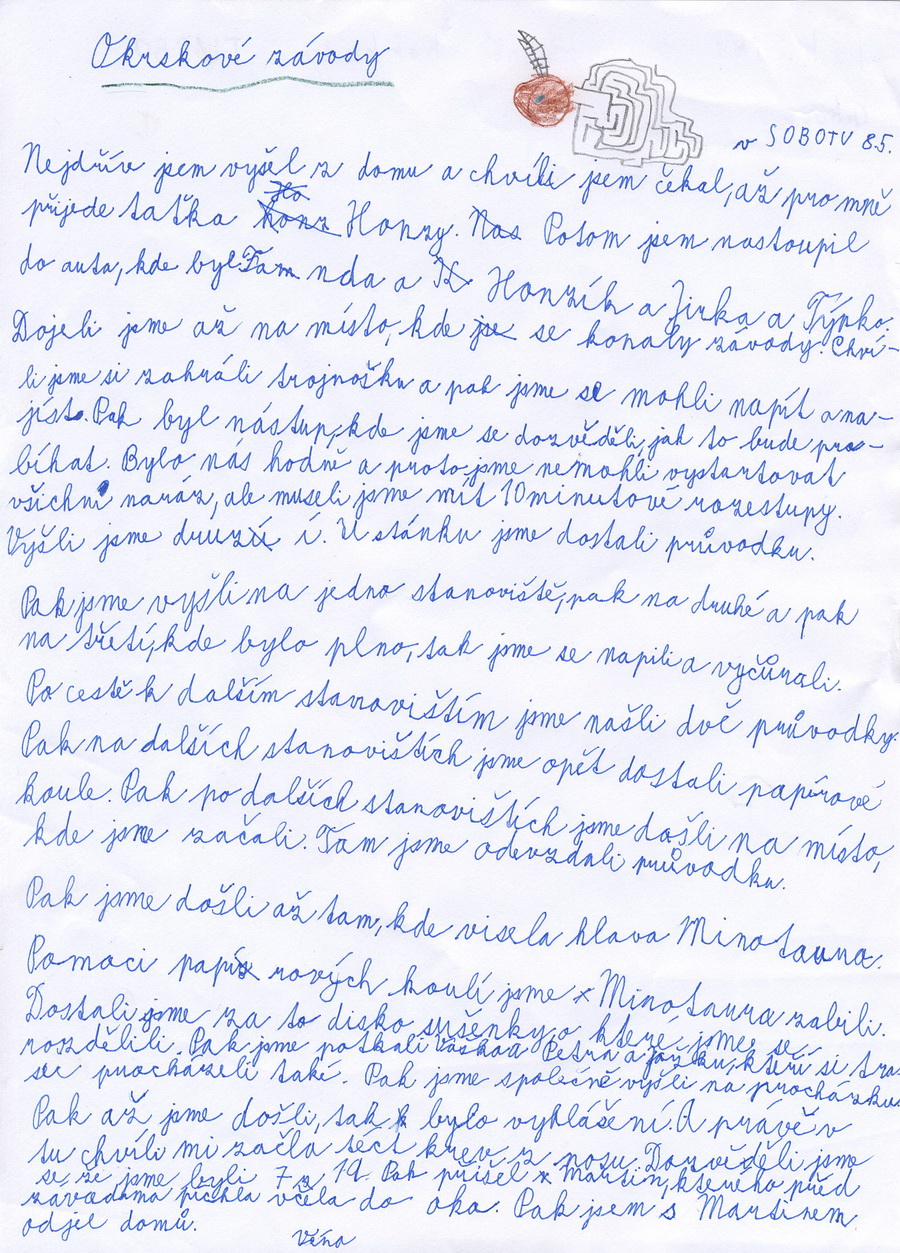 Okrskové závody
v SOBOTU 8.5.
Nejdřív jsem vyšel z domu a chvíli jsem čekal, až pro mně
přijede taťka Honzy. Potom jsem nastoupil
do auta, kde byl Tam nda a Honzík a Jirka a Týpko.
Dojeli jsme až na místo, kde se konaly závody. Chví-
li jsme si zahráli trojnožku a pak jsme se mohli napít a na-
jíst. Pak byl nástup, kde jsme se dozvěděli, jak to bude pro-
bíhat. Bylo nás hodně a proto jsme nemohli vystartovat
všichni naráz, ale museli jsme mít 10 minutové rozestupy.
Vyšli jsme druzí. U stánku jsme dostali průvodku.
Pak jsme vyšli na jedno stanoviště, pak na druhé a pak
na třetí, kde bylo plno, tak jsme se napili a vyčůrali.
Po cestě k dalším stanovištím jsme našli dvě průvodky.
Pak na dalších stanovištích jsme opět dostali papírové
koule. Pak po dalších stanovištích jsme došli na místo,
kde jsme začali. Tam jsme odevzdali průvodku.
Pak jsme došli až tam, kde visela hlava Minotaura.
Pomoci papírových koulí jsme Minotaura zabili.
Dostali jsme za to disko sušenky, o které jsme se
rozdělili. Pak jsme potkali Vaška a Petra a, kteří si tra-
sec procházeli také. Pak jsme společně vyšli na procházku.
Pak až jsme došli, tak bylo vyhlášení. A právě v
tu chvíli mi začla téct krev z nosu. Dozvěděli jsme
se, že jsme byli 7. z 19. Pak přišel Martin, kterého před
závodama píchla včela do oka. Pak jsem s Martinem
odjel domů.
Véna